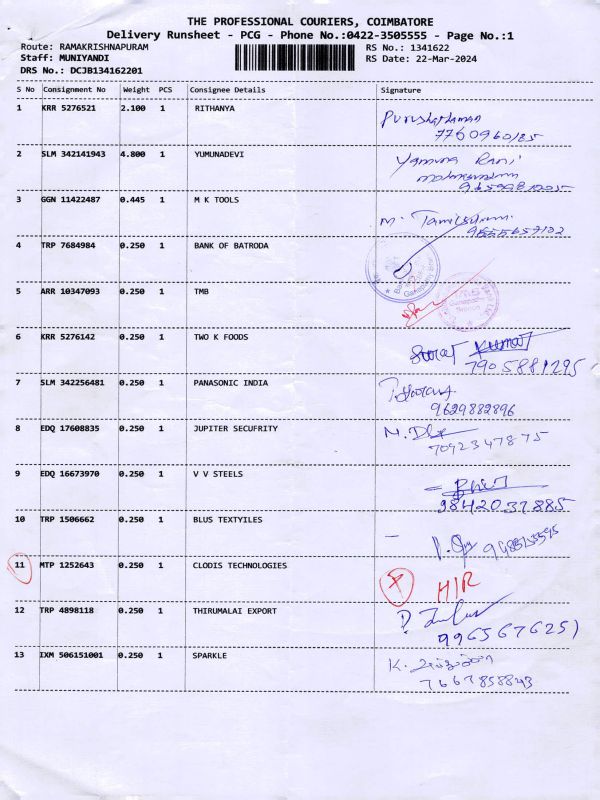 THE PROFESSIONAL COURIERS, COIMBATORE
Delivery Runsheet - PCG - Phone No.:0422-3505555 - Page No.:1
Route: RAMAKRISHNAPURAM RS No.: 1341622
Staff: MUNIYANDI RS Date: 22-Mar-2024
DRS No.: DCJB134162201
S No Consignment No Weight PCS Consignee Details Signature
1 KRR 5276521 2.100 1 RITHANYA
2 SLM 342141943 4.800 1 YUMUNADEVI Yamuna Rani
3 GGN 11422487 0.445 1 M K TOOLS
4 TRP 7684984 0.250 1 BANK OF BATRODA
5 ARR 10347093 0.250 1 TMB
6 KRR 5276142 0.250 1 TWO K FOODS Kumar
7905881295
7 SLM 342256481 0.250 1 PANASONIC INDIA
9629882896
8 EDQ 17608835 0.250 1 JUPITER SECUFRITY
7092347875
9 EDQ 16673970 0.250 1 V V STEELS
9842037885
10 TRP 1506662 0.250 1 BLUS TEXTYILES
11 MTP 1252643 0.250 1 CLODIS TECHNOLOGIES
12 TRP 4898118 0.250 1 THIRUMALAI EXPORT
13 IXM 506151001 0.250 1 SPARKLE
7667858843